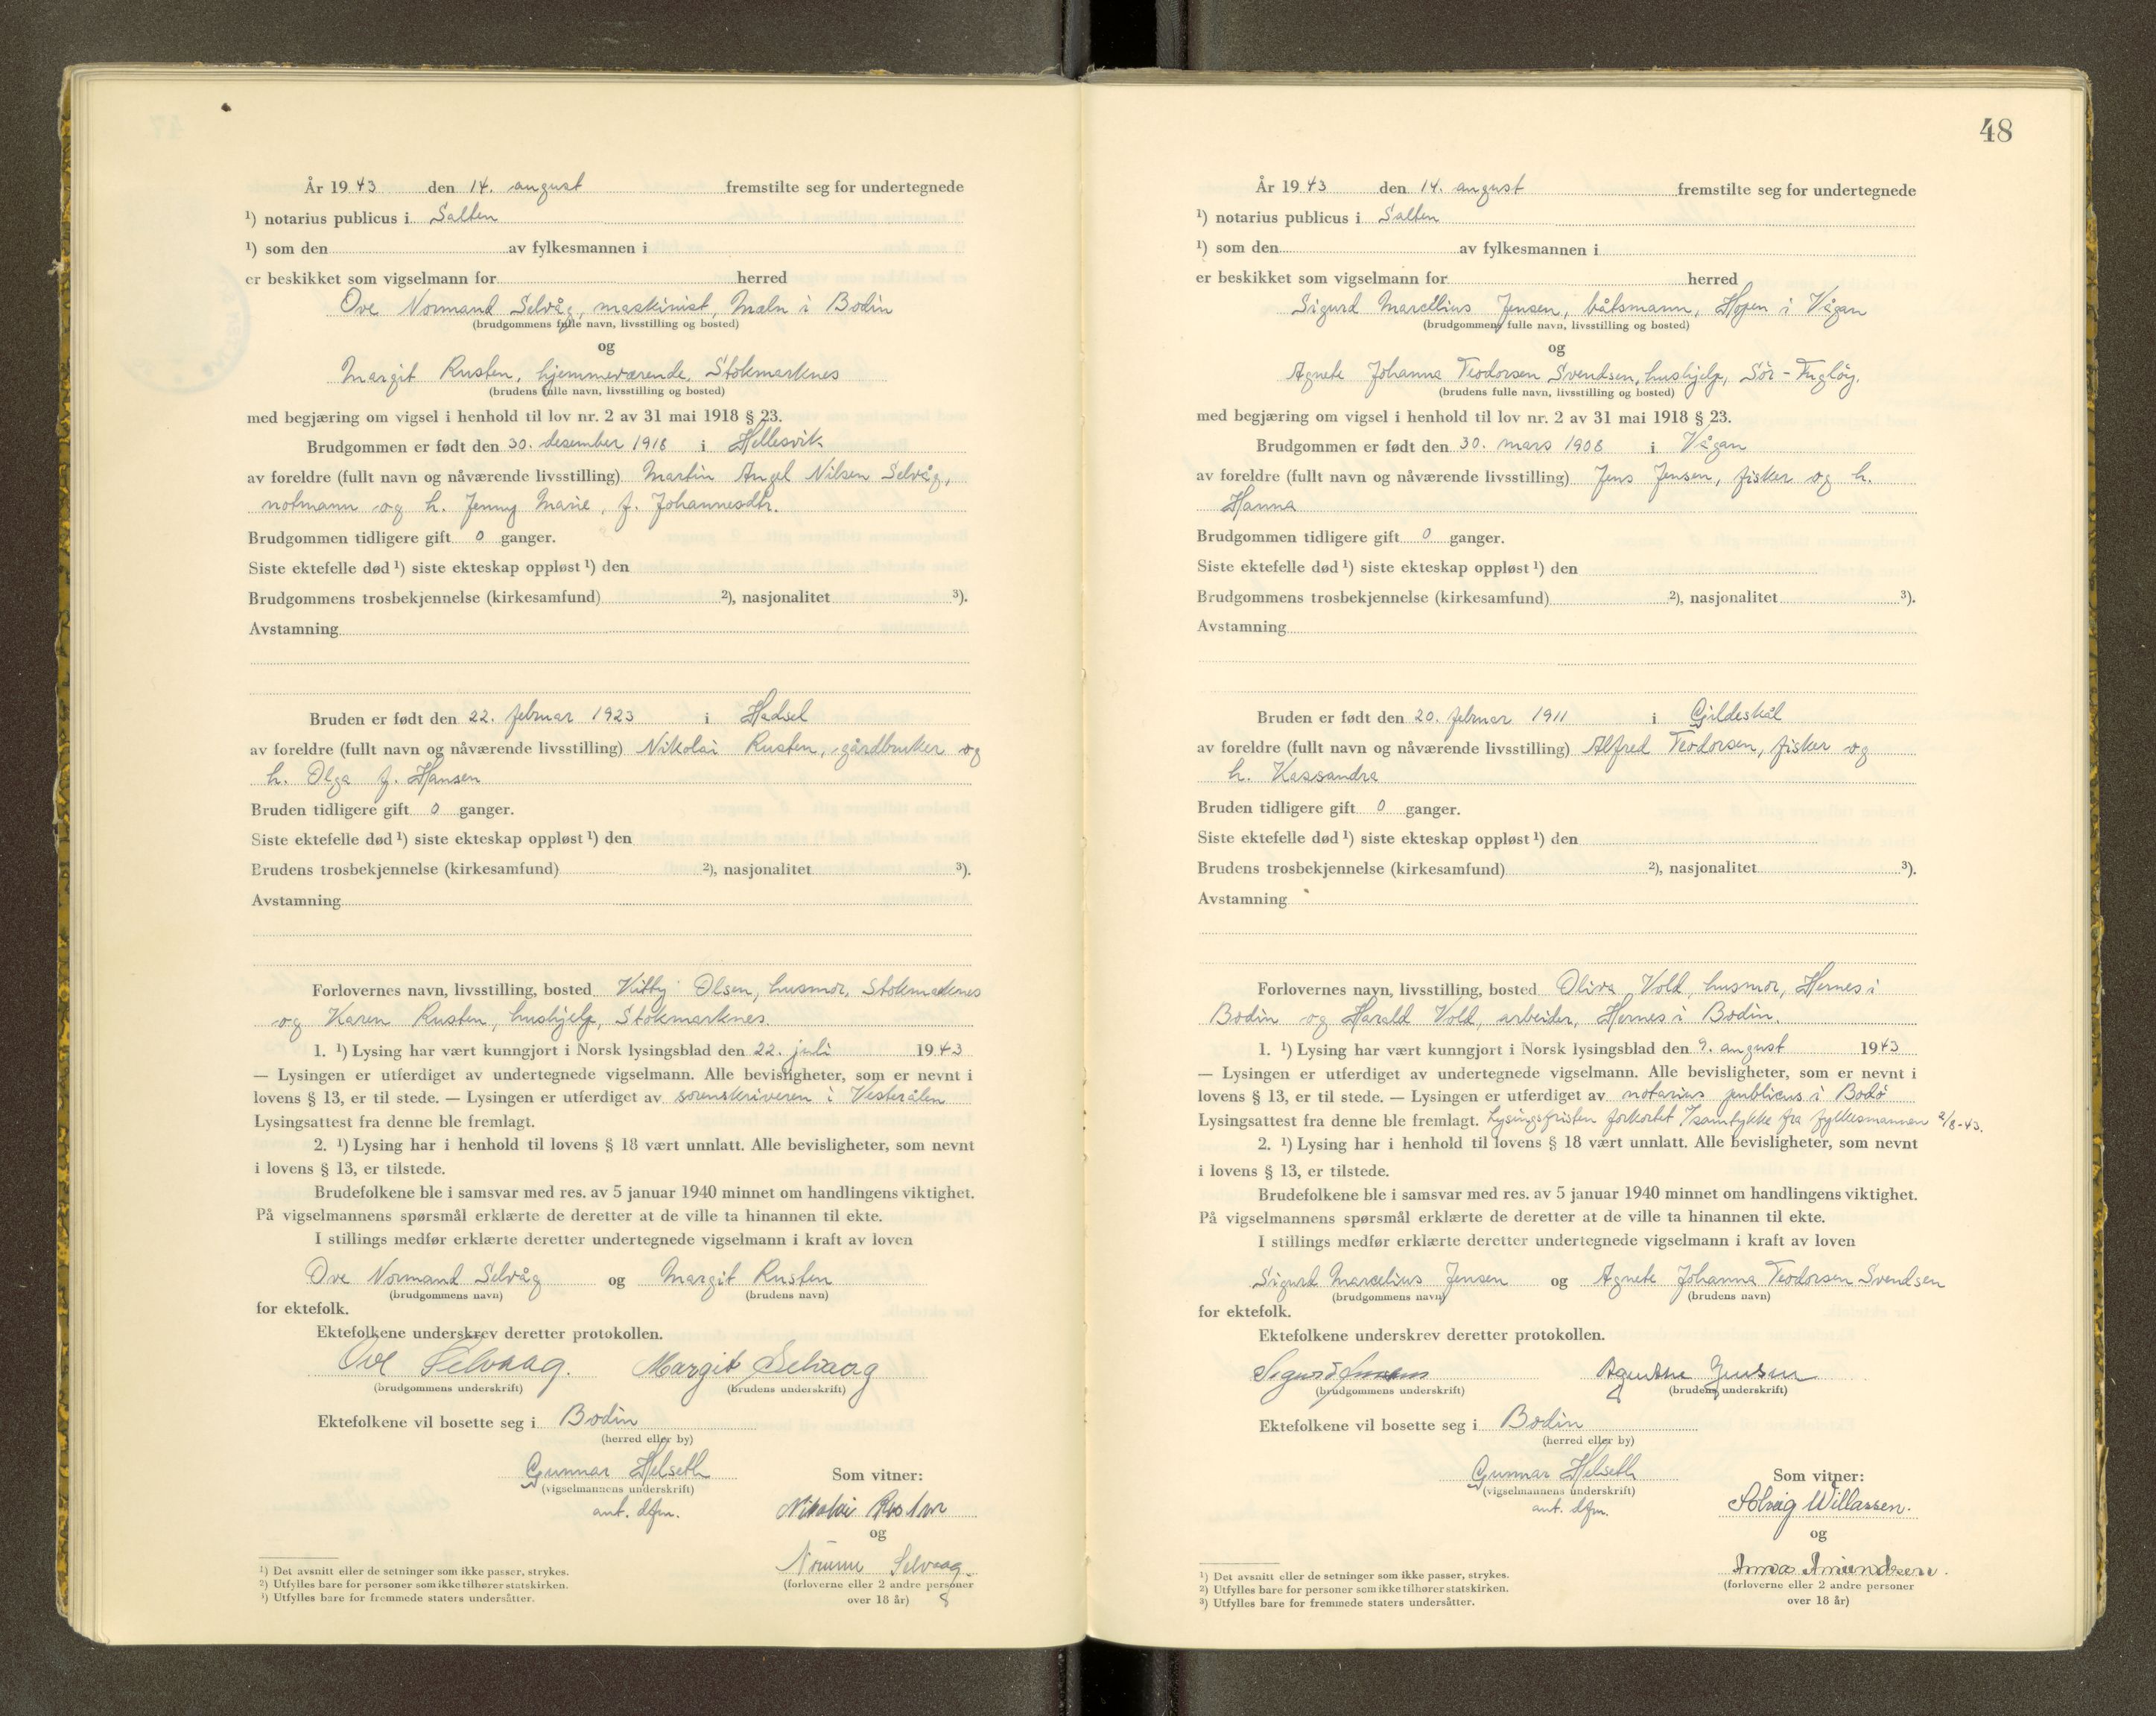 År 1943 den 14. august fremstilte seg for undertegnede
¹) notarius publicus i Salten
¹) som den av fylkesmannen i
er beskikket som vigselmann for herred
Ove Normand Selvåg, maskinist, Mæln i Bodin
(brudgommens fulle navn, livsstilling og bosted)
og
Margit Rusten, hjemmeværende, Stokmarknes
(brudens fulle navn, livsstilling og bosted)
med begjæring om vigsel i henhold til lov nr. 2 av 31 mai 1918 § 23.
Brudgommen er født den 30. desember 1918 i Hellesvik
av foreldre (fullt navn og nåværende livsstilling) Martin Angel Nilsen Selvåg,
notmann og h. Jenny Marie, f. Johannesdtr.
Brudgommen tidligere gift 0 ganger.
Siste ektefelle død ¹) siste ekteskap oppløst ¹) den
Brudgommens trosbekjennelse (kirkesamfund) ²), nasjonalitet ³).
Avstamning
Bruden er født den 22. februar 1923 i Hadsel
av foreldre (fullt navn og nåværende livsstilling) Nikolai Rusten, gårdbruker og
h. Olga f. Hansen
Bruden tidligere gift 0 ganger.
Siste ektefelle død ¹) siste ekteskap oppløst ¹) den
Brudens trosbekjennelse (kirkesamfund) ²), nasjonalitet ³).
Avstamning
Forlovernes navn, livsstilling, bosted Kitty Olsen, husmor, Stokmarknes
og Karen Rusten, hushjelp, Stokmarknes.
1. ¹) Lysing har vært kunngjort i Norsk lysingsblad den 22. juli 1943
— Lysingen er utferdiget av undertegnede vigselmann. Alle bevisligheter, som er nevnt i
lovens § 13, er til stede. — Lysingen er utferdiget av sorenskriveren i Vesterålen
Lysingsattest fra denne ble fremlagt.
2. ¹) Lysing har i henhold til lovens § 18 vært unnlatt. Alle bevisligheter, som nevnt
i lovens § 13, er tilstede.
Brudefolkene ble i samsvar med res. av 5 januar 1940 minnet om handlingens viktighet.
På vigselmannens spørsmål erklærte de deretter at de ville ta hinannen til ekte.
I stillings medfør erklærte deretter undertegnede vigselmann i kraft av loven
Ove Normand Selvåg og Margit Rusten
(brudgommens navn) (brudens navn)
for ektefolk.
Ektefolkene underskrev deretter protokollen.
Ove Selvaag. Margit Selvaag
(brudgommens underskrift) (brudens underskrift)
Ektefolkene vil bosette seg i Bodin
(herred eller by)
Gunnar Helseth Som vitner:
(vigselmannens underskrift)
aut. dfm. Nikolai Rusten
og
Selvaag.
(forloverne eller 2 andre personer
over 18 år) 8
¹) Det avsnitt eller de setninger som ikke passer, strykes.
²) Utfylles bare for personer som ikke tilhører statskirken.
³) Utfylles bare for fremmede staters undersåtter.
48
År 1943 den 14. august fremstilte seg for undertegnede
¹) notarius publicus i Salten
¹) som den av fylkesmannen i
er beskikket som vigselmann for herred
Sigurd Marcelius Jensen, båtsmann, Hopen i Vågan
(brudgommens fulle navn, livsstilling og bosted)
og
Agnete Johanna Teodorsen Svendsen, hushjelp, Sör-Fugløy.
(brudens fulle navn, livsstilling og bosted)
med begjæring om vigsel i henhold til lov nr. 2 av 31 mai 1918 § 23.
Brudgommen er født den 30. mars 1908 i Vågan
av foreldre (fullt navn og nåværende livsstilling) Jens Jensen, fisker og h.
Hanna
Brudgommen tidligere gift 0 ganger.
Siste ektefelle død ¹) siste ekteskap oppløst ¹) den
Brudgommens trosbekjennelse (kirkesamfund) ²), nasjonalitet ³).
Avstamning
Bruden er født den 20. februar 1911 i Gildeskål
av foreldre (fullt navn og nåværende livsstilling) Alfred Teodorsen, fisker og
h. Kassandra
Bruden tidligere gift 0 ganger.
Siste ektefelle død ¹) siste ekteskap oppløst ¹) den
Brudens trosbekjennelse (kirkesamfund) ²), nasjonalitet ³).
Avstamning
Forlovernes navn, livsstilling, bosted Oliva Vold, husmor, Hernes i
Bodin og Harald Vold, arbeider, Hernes i Bodin.
1. ¹) Lysing har vært kunngjort i Norsk lysingsblad den 9. august 1943
— Lysingen er utferdiget av undertegnede vigselmann. Alle bevisligheter, som er nevnt i
lovens § 13, er til stede. — Lysingen er utferdiget av notarius publicus i Bodø
Lysingsattest fra denne ble fremlagt. Lysingsfristen forkortet / samtykke fra fylkesmannen 2/8-43.
2. ¹) Lysing har i henhold til lovens § 18 vært unnlatt. Alle bevisligheter, som nevnt
i lovens § 13, er tilstede.
Brudefolkene ble i samsvar med res. av 5 januar 1940 minnet om handlingens viktighet.
På vigselmannens spørsmål erklærte de deretter at de ville ta hinannen til ekte.
I stillings medfør erklærte deretter undertegnede vigselmann i kraft av loven
Sigurd Marcelius Jensen og Agnete Johanna Teodorsen Svendsen
(brudgommens navn) (brudens navn)
for ektefolk.
Ektefolkene underskrev deretter protokollen.
Sigurd Jensen Agnethe Jensen
(brudgommens underskrift) (brudens underskrift)
Ektefolkene vil bosette seg i Bodin
(herred eller by)
Gunnar Helseth Som vitner:
(vigselmannens underskrift)
aut. dfm. Solveig Willassen.
og
Anna Amundsen.
(forloverne eller 2 andre personer
over 18 år)
¹) Det avsnitt eller de setninger som ikke passer, strykes.
²) Utfylles bare for personer som ikke tilhører statskirken.
³) Utfylles bare for fremmede staters undersåtter.